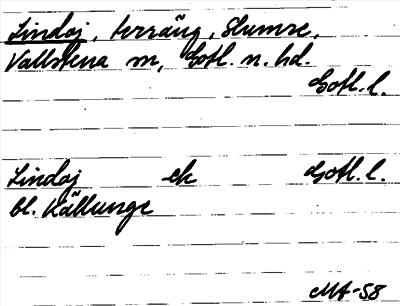 Lindaj, terräng, Slumre,
Vallstena sn, Gotl. n. hd.
Gotl. l.
Lindaj ek Gotl. l.
bl. Källunge
MA-58